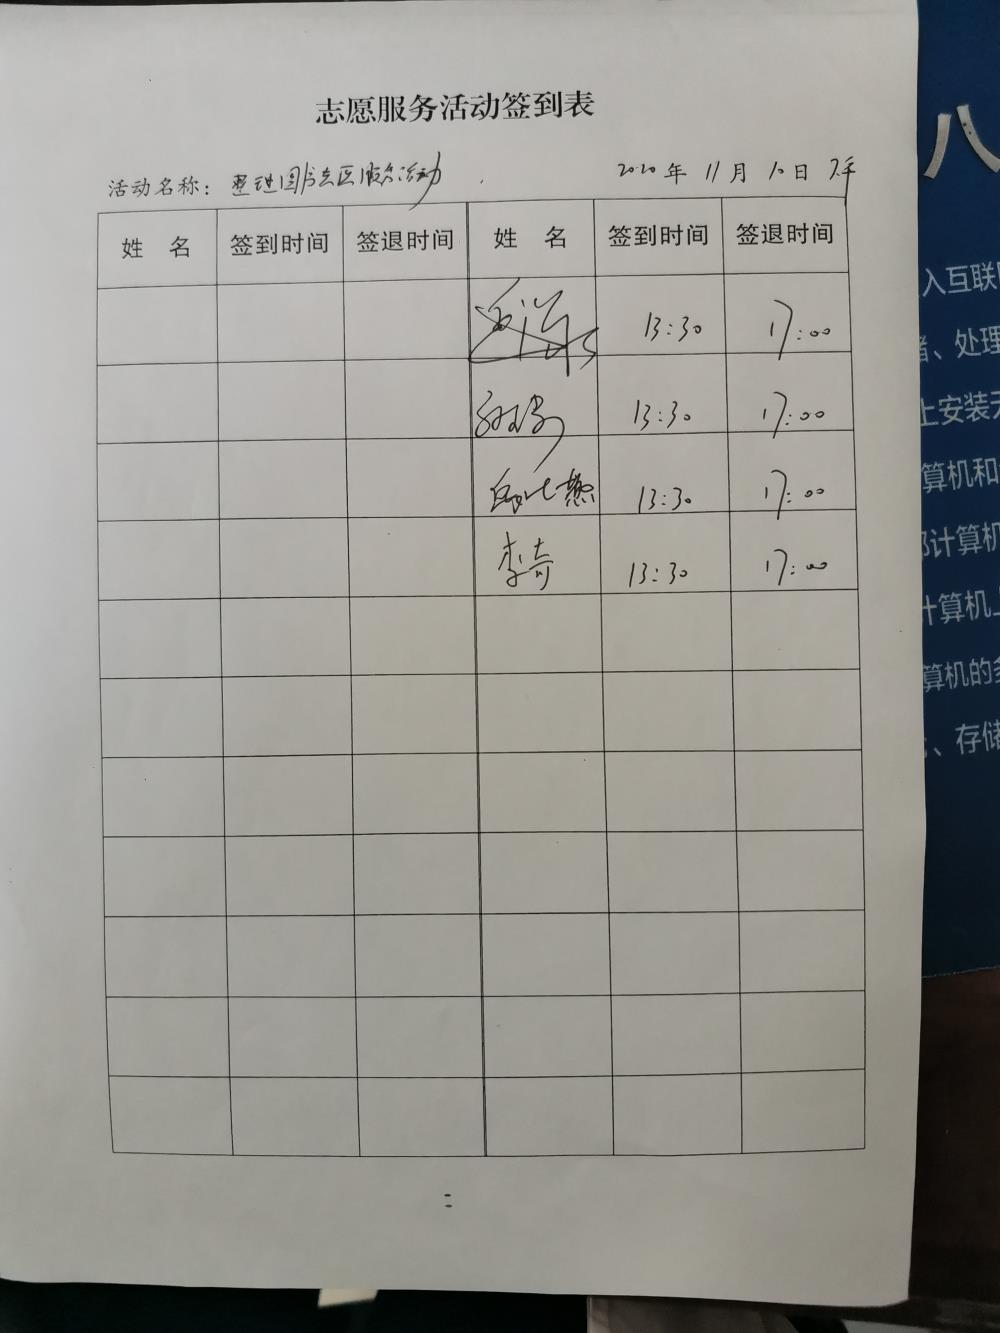 志愿服务活动签到表
活动名称：
2020年11月10日
姓 名 签到时间 签退时间 姓 名 签到时间 签退时间
13:30 17:00
13:30 17:00
13:30 17:00
李奇 13:30 17:00
八
入互联
、处理
上安装
算机和
计算机
计算机上
算机的多
、存储